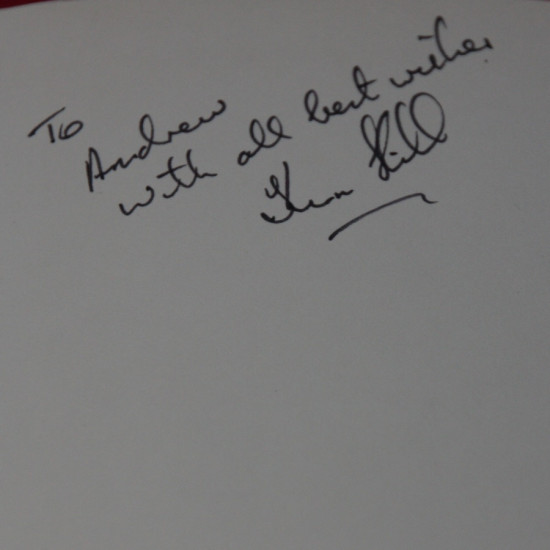 To
Andrew
with all best wishes
Hill